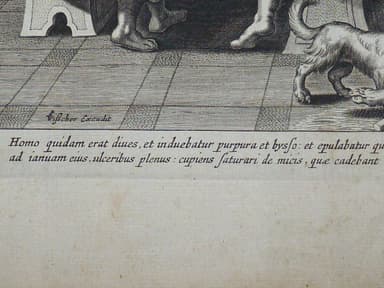 Visscher Excudit
Homo quidam erat diues, et induebatur purpura et bysso: et epulabatur
ad ianuam eius, ulceribus plenus: cupiens saturari de micis, quæ cadebant